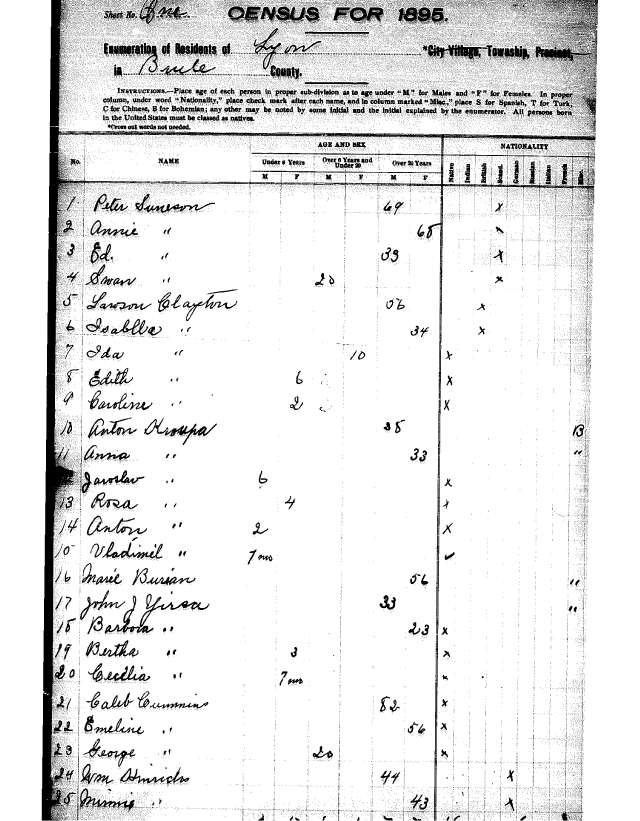 Sheet No. One
CENSUS FOR 1895.
Enumeration of Residents of Lyon *City Village, Township, Precinct,
in Brule County.
INSTRUCTIONS.—Place age of each person in proper sub-division as to age under "M" for Males and "F" for Females. In proper
column, under word "Nationality," place check mark after each name, and in column marked "Misc.," place S for Spanish, T for Turk,
C for Chinese, B for Bohemian; any other may be noted by some initial and the initial explained by the enumerator. All persons born
in the United States must be classed as natives.
*Cross out words not needed.
AGE AND SEX NATIONALITY
No. NAME Under 6 Years Over 6 Years and Under 20 Over 20 Years Native Indian British Scand. German Russian Italian French Misc.
M F M F M F
1 Peter Suneson 69 x
2 Annie " 68 x
3 Ed. " 39 x
4 Swan " 20 x
5 Lawson Clayton 56 x
6 Isablla " 34 x
7 Ida " 10 x
8 Edith " 6 x
9 Caroline " 2 x
10 Anton Kroupa 38 B
11 Anna " 33 "
12 Jaroslav " 6 x
13 Rosa " 4 x
14 Anton " 2 x
15 Vladimél " 7 mo ✓
16 Marie Burian 56 "
17 John J Yirsa 33 "
18 Barbora " 23 x
19 Bertha " 3 x
20 Cecelia " 7 mo x
21 Caleb Cummins 52 x
22 Emeline " 56 x
23 George " 20 x
24 Wm Hinrichs 44 x
25 Minnie " 43 x